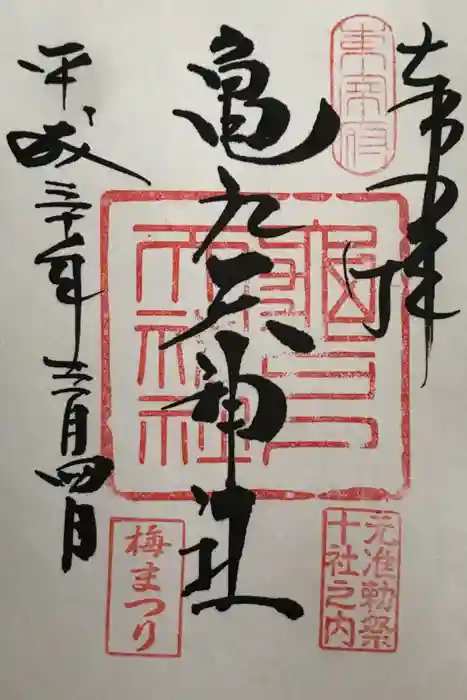 奉拝
東宰府
元准勅祭
十社之内
亀戸天神社
平成三十年三月四日
梅まつり